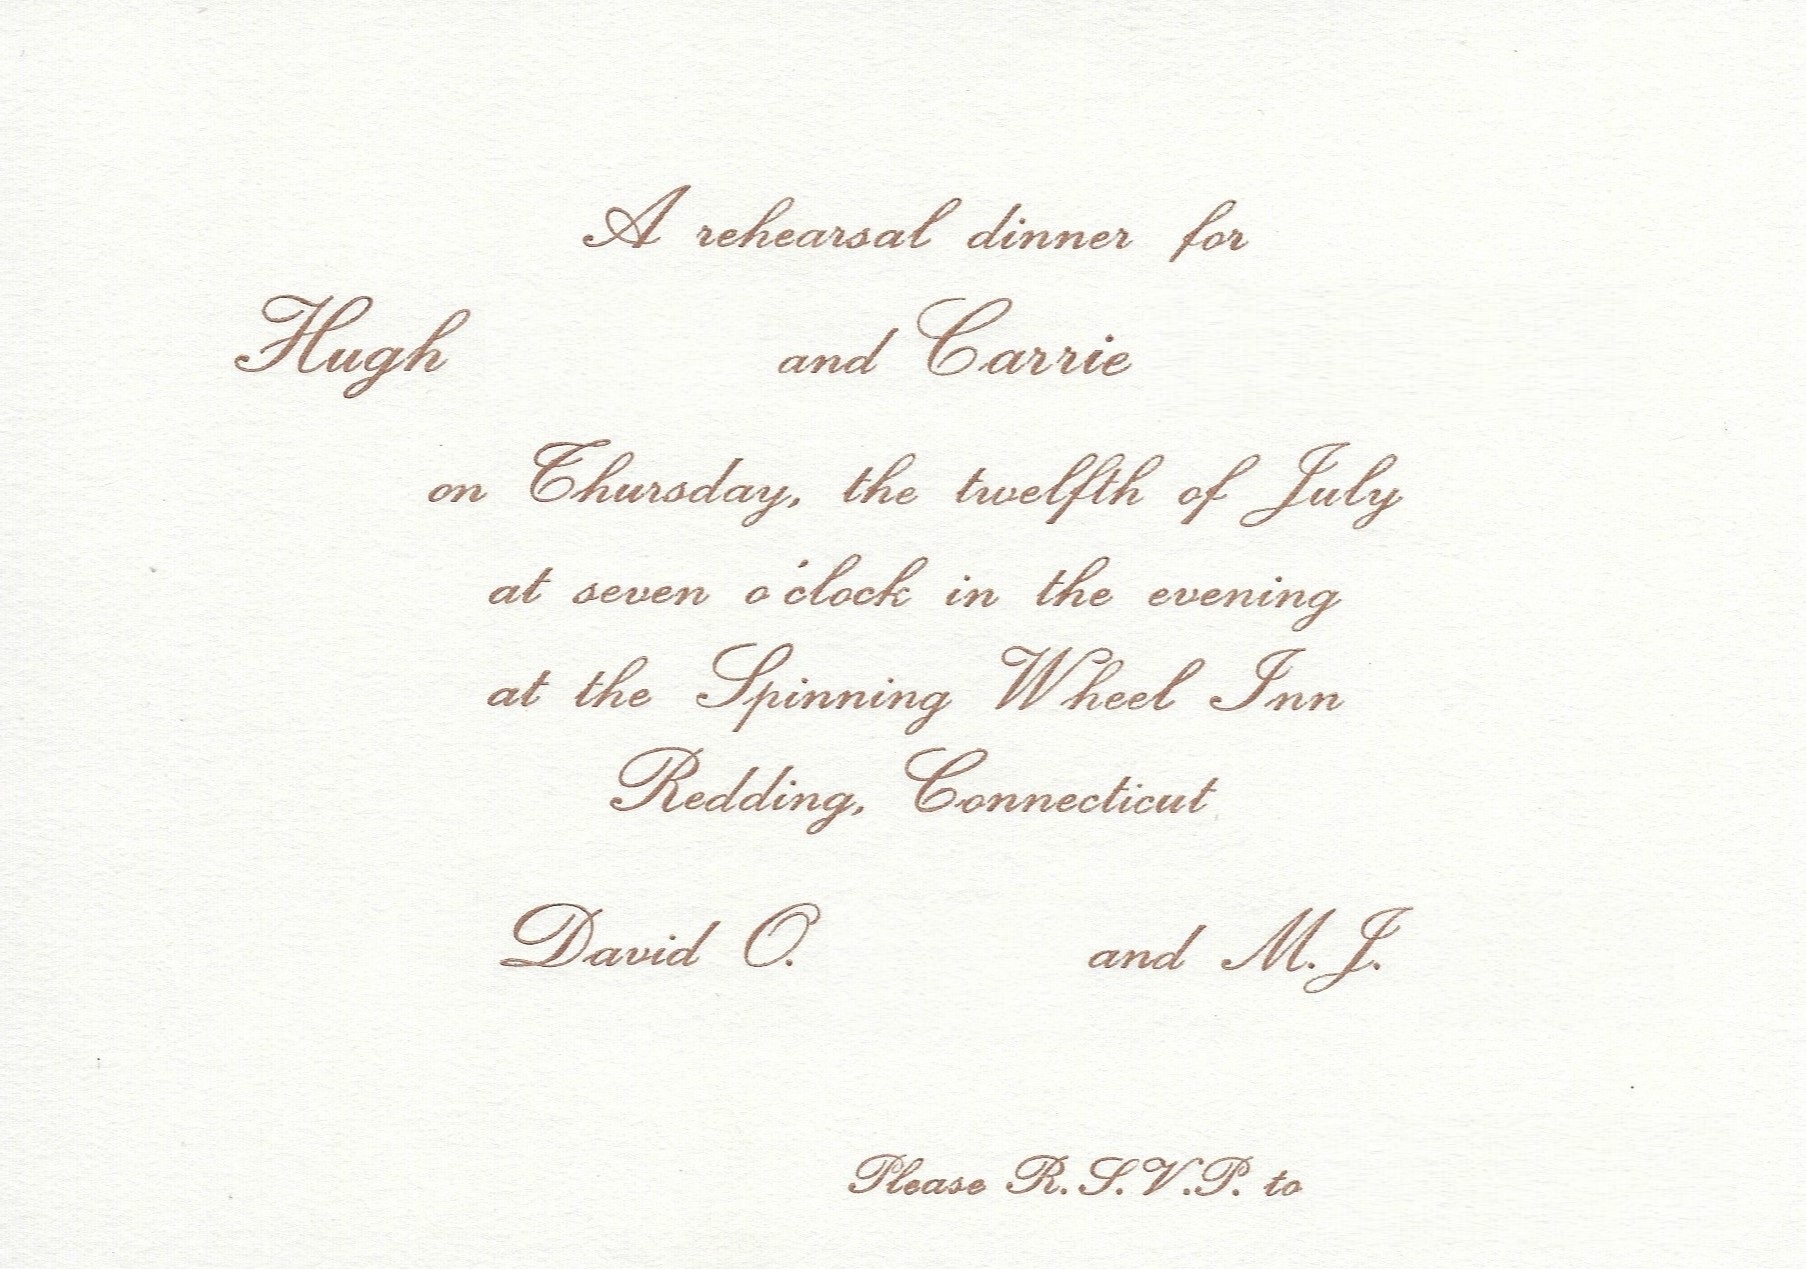 A rehearsal dinner for
Hugh and Carrie
on Thursday, the twelfth of July
at seven o'clock in the evening
at the Spinning Wheel Inn
Redding, Connecticut
David O. and M.J.
Please R.S.V.P. to